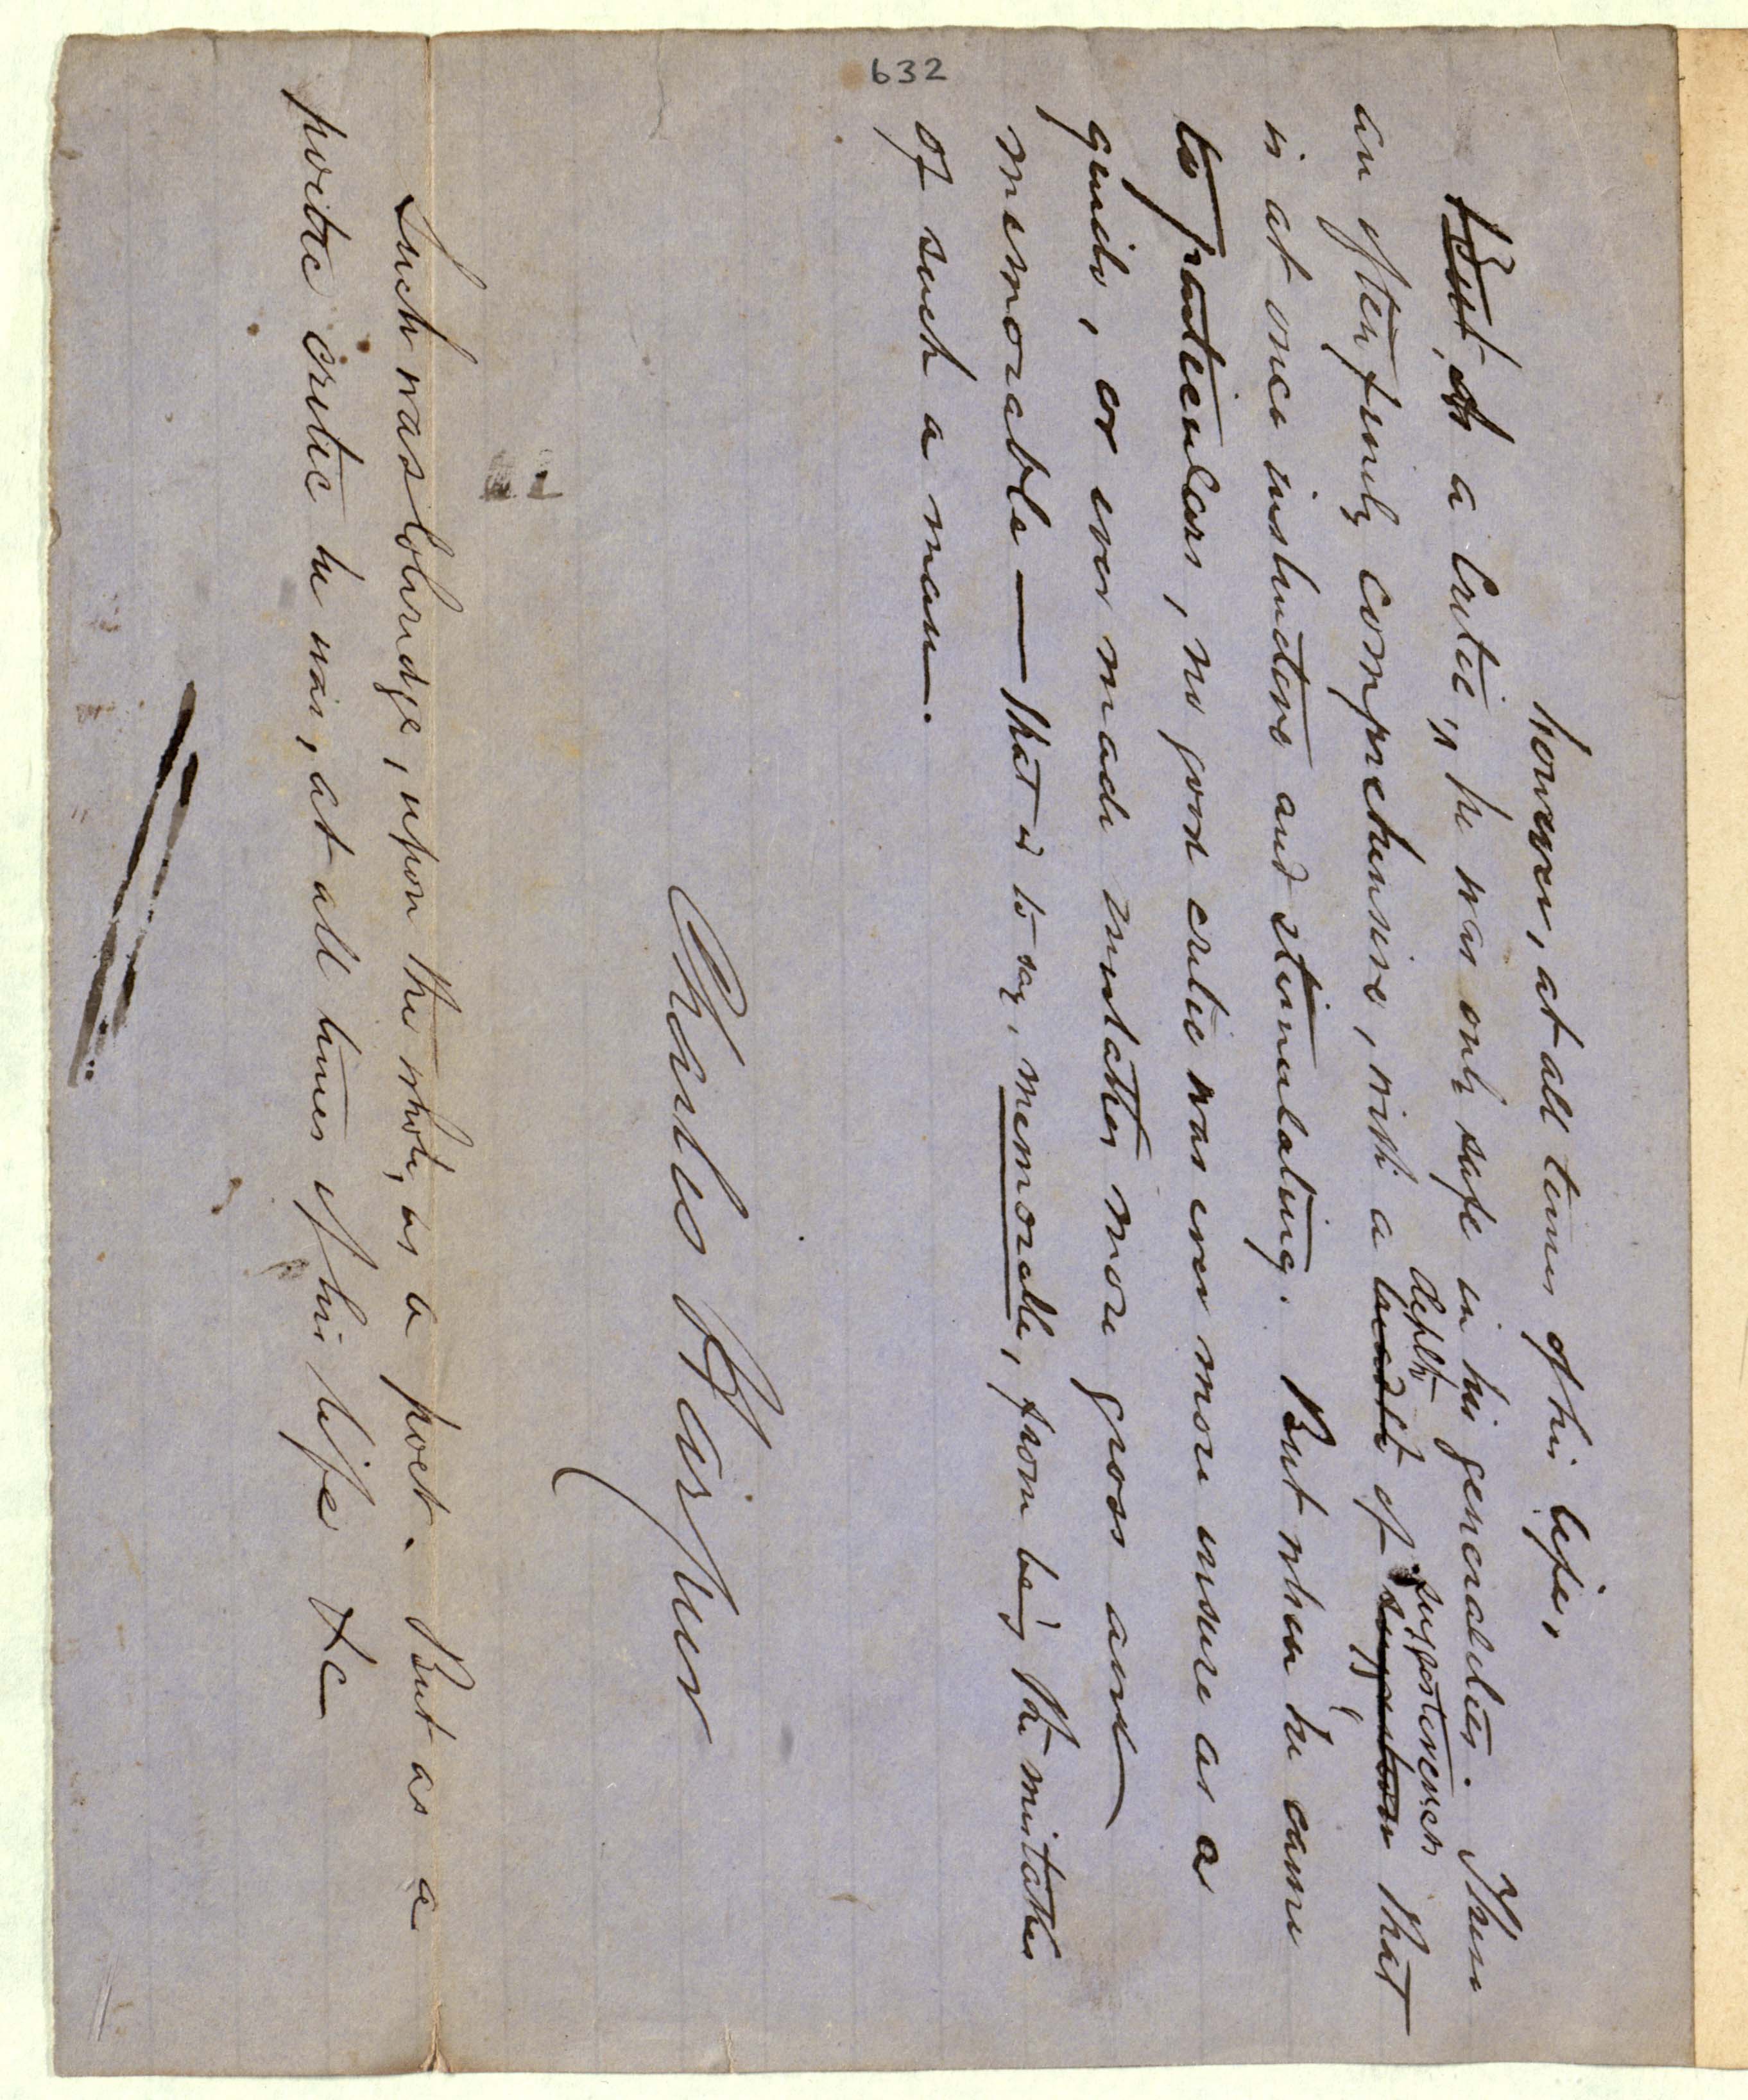 632
however, at all times of his life,
But, As a Critic, he was only safe in his generalities. These
depth suggestiveness
are often finely comprehensive, with a breadth of suggestion that
is at once instructive and stimulating. But when he came
to particulars, no good critic was ever more unsure as a
guide, or ever made mistakes more gross and
memorable — that is to say, memorable, from being the mistakes
of such a man.
Charles Harpur
Such was Coleridge, upon the whole, as a poet. But as a
poetic critic he was, at all times of his life &c